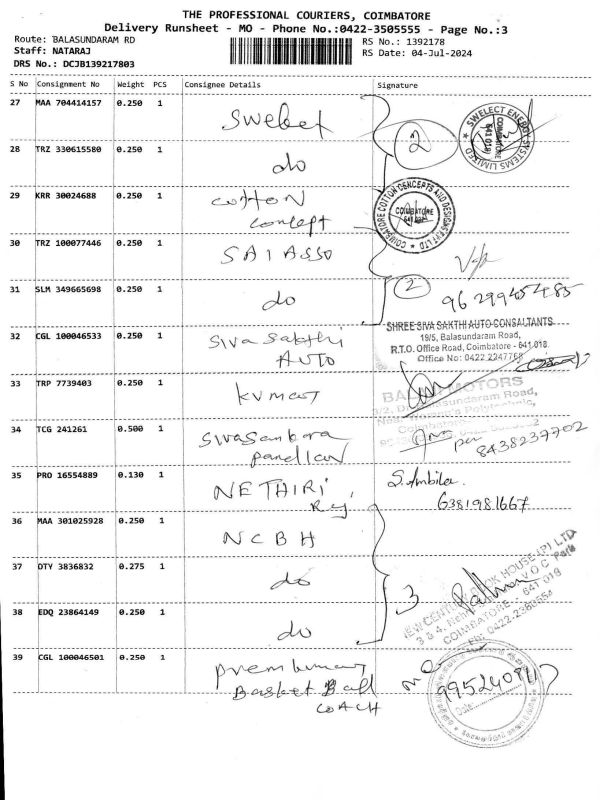 THE PROFESSIONAL COURIERS, COIMBATORE
Delivery Runsheet - MO - Phone No.:0422-3505555 - Page No.:3
Route: BALASUNDARAM RD
Staff: NATARAJ
DRS No.: DCJB139217803
RS No.: 1392178
RS Date: 04-Jul-2024
S No Consignment No Weight PCS Consignee Details Signature
27 MAA 704414157 0.250 1 Swelect
SWELECT ENERGY SYSTEMS LIMITED
COIMBATORE
641 018
2
28 TRZ 330615580 0.250 1 do
29 KRR 30024688 0.250 1 cotton
concept
COIMBATORE COTTON CONCEPTS AND DESIGNS PVT LTD
COIMBATORE
30 TRZ 100077446 0.250 1 SAI ASSO
31 SLM 349665698 0.250 1 do
2
32 CGL 100046533 0.250 1 Siva Sakthi
AUTO
SHREE SIVA SAKTHI AUTO CONSALTANTS
19/5, Balasundaram Road,
R.T.O. Office Road, Coimbatore - 641 018.
Office No: 0422 2247768
33 TRP 7739403 0.250 1 kumar
MOTORS
Balasundaram Road,
34 TCG 241261 0.500 1 Sivasankara
pandian
8438237702
35 PRO 16554889 0.130 1 NETHIRI
S. Ambika
6381981667
36 MAA 301025928 0.250 1 NCBH
37 DTY 3836832 0.275 1 do
3
NEW CENTURY BOOK HOUSE (P) LTD
COIMBATORE - 641 018
38 EDQ 23864149 0.250 1 do
39 CGL 100046501 0.250 1 premkumar
Basket Ball
COACH
Date: